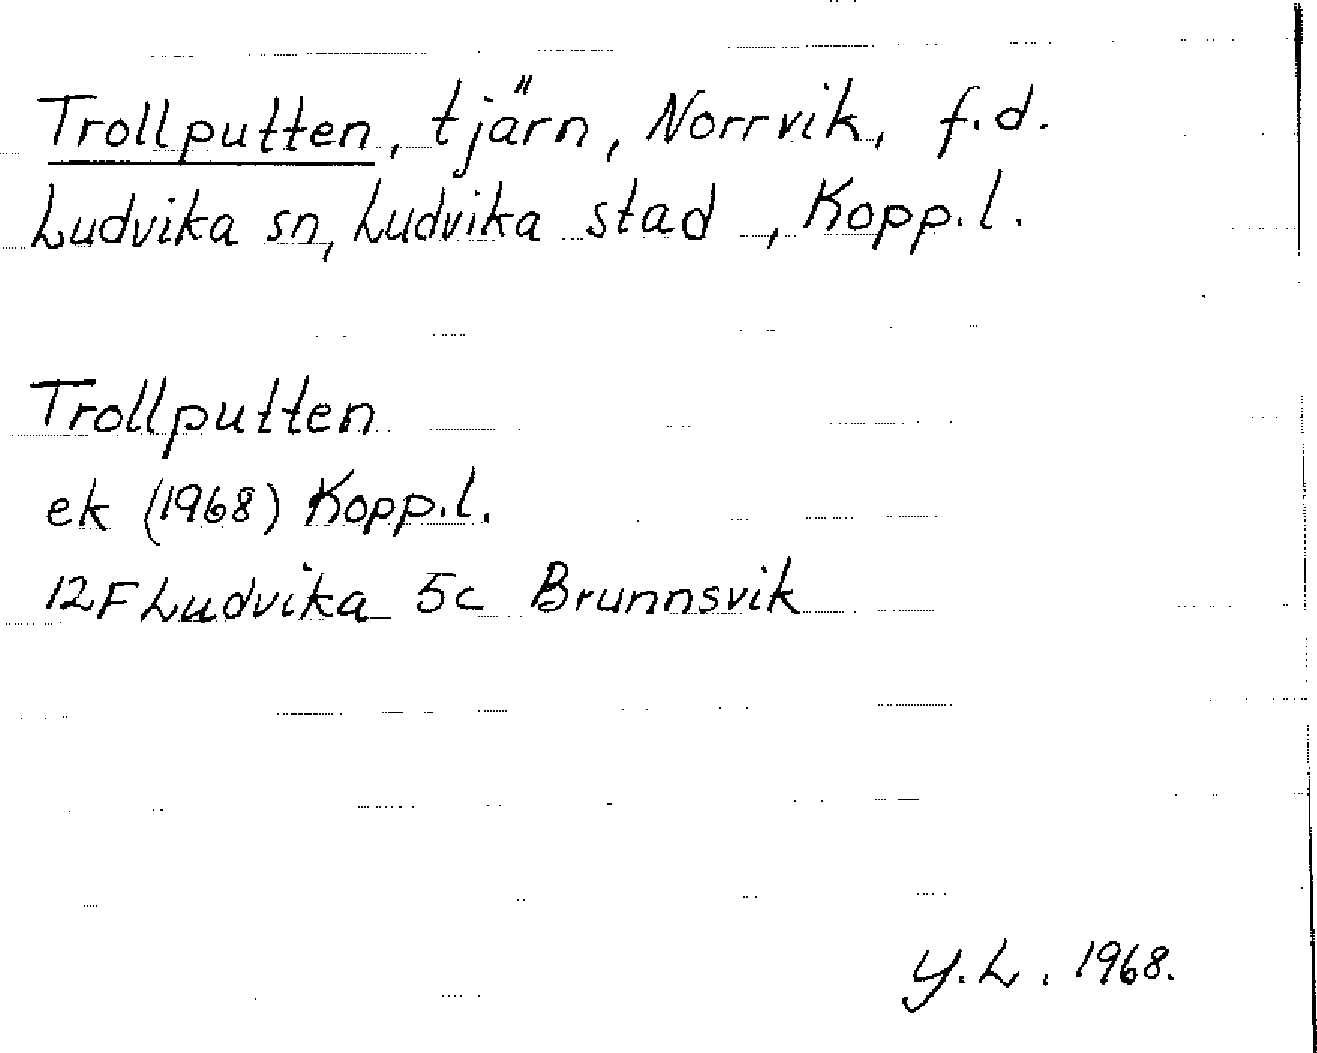 Trollputten, tjärn, Norrvik, f.d.
Ludvika sn, Ludvika stad, Kopp.l.
Trollputten
ek (1968) Kopp.l.
12F Ludvika 5c Brunnsvik
Y.L. 1968.